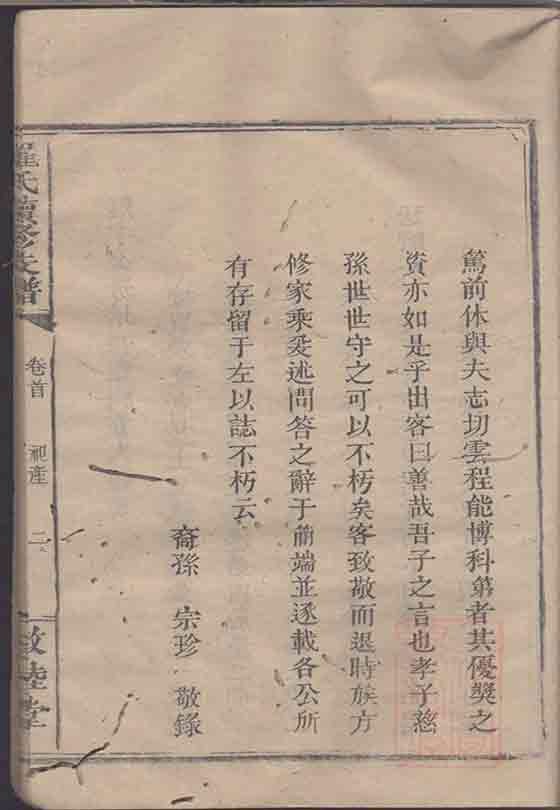 篤前休與夫志切雲程能博科第者其優獎之
資亦如是乎出客曰善哉吾子之言也孝子慈
孫世世守之可以不朽矣客致敬而退時族方
修家乘爰述問答之辭于簡端並逐載各公所
有存留于左以誌不朽云
裔孫 宗珍 敬錄
羅氏續修支譜
卷首
祀產
二
敦睦堂